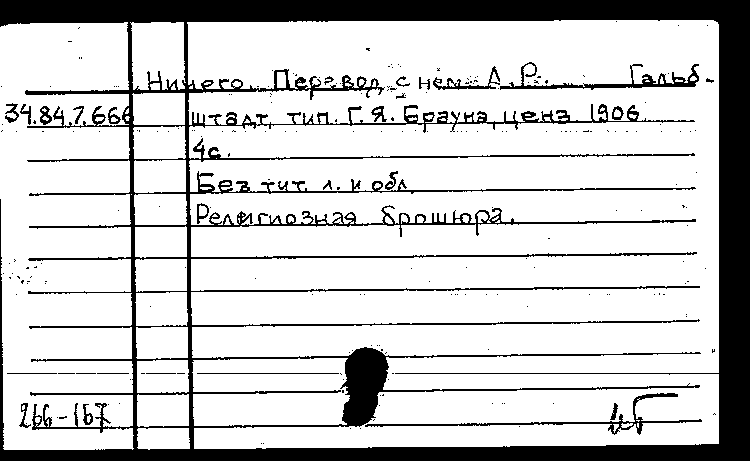 Ничего. Перевод с нем. А.Р. Гальб-
34.84.7.666 штадт, тип. Г. Я. Брауна, ценз 1906
4с.
Без тит. л. и обл.
Религиозная брошюра.
266-167